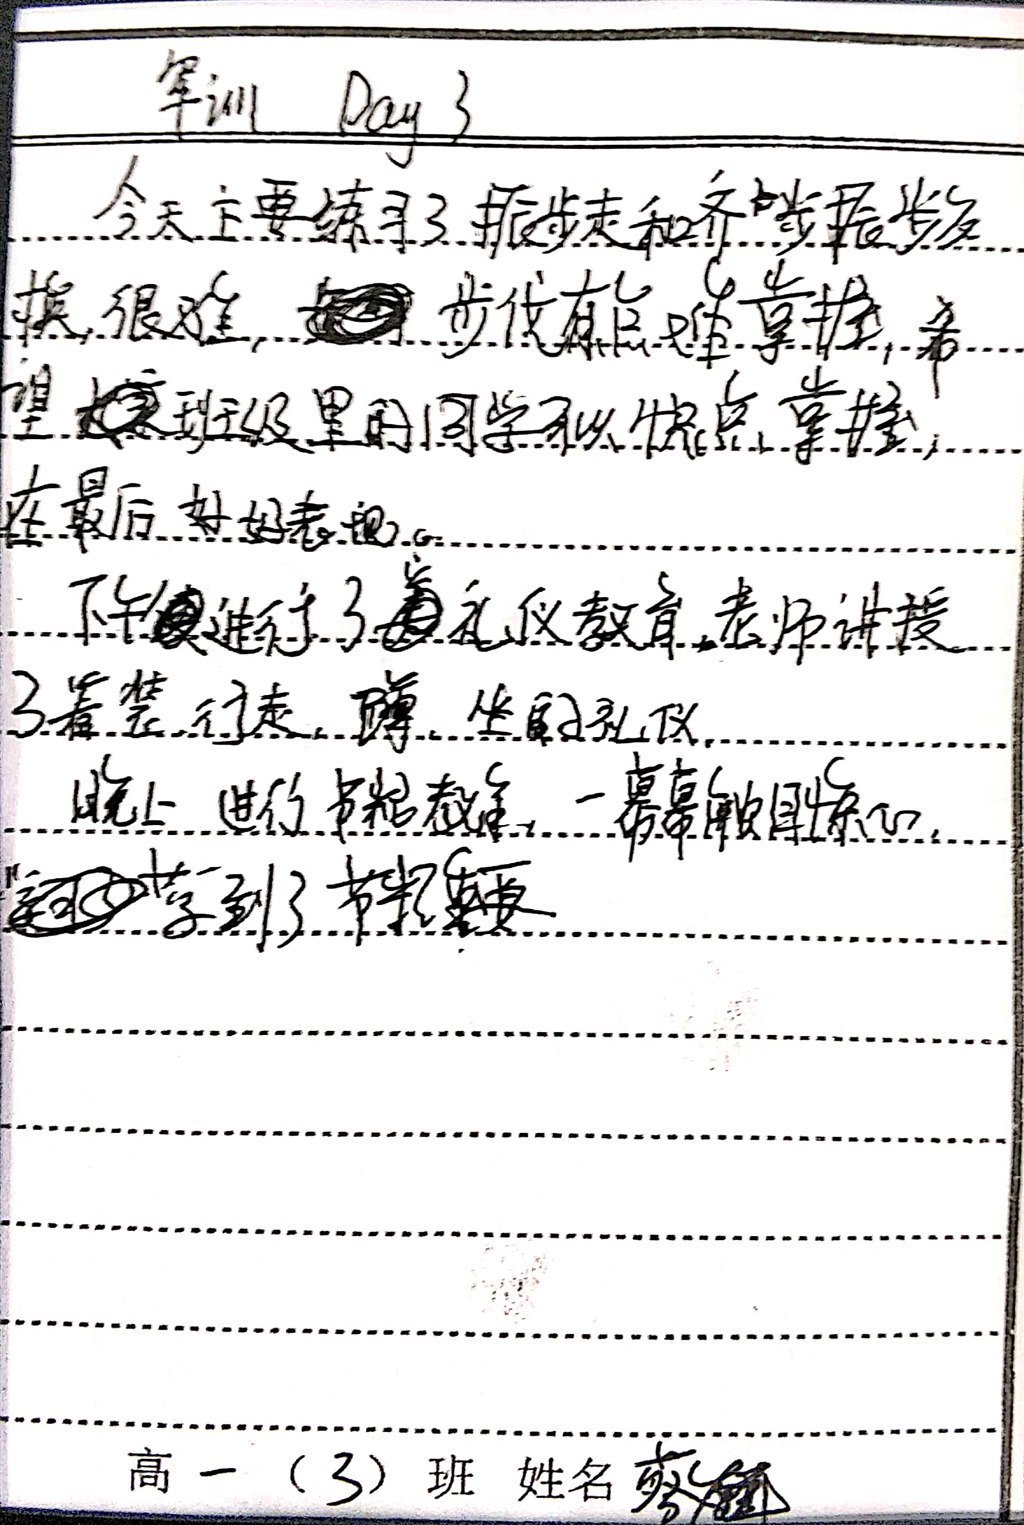 军训 Day 3
今天主要练习了振步走和齐步振步互
换,很难,步伐有点难掌握,希
望班级里的同学可以快点掌握,
在最后好好表现。
下午进行了礼仪教育,老师讲授
了着装、行走、蹲、坐的礼仪,
晚上进行节粮教育,一幕幕触目惊心,
学到了节粮重要
高一(3)班 姓名